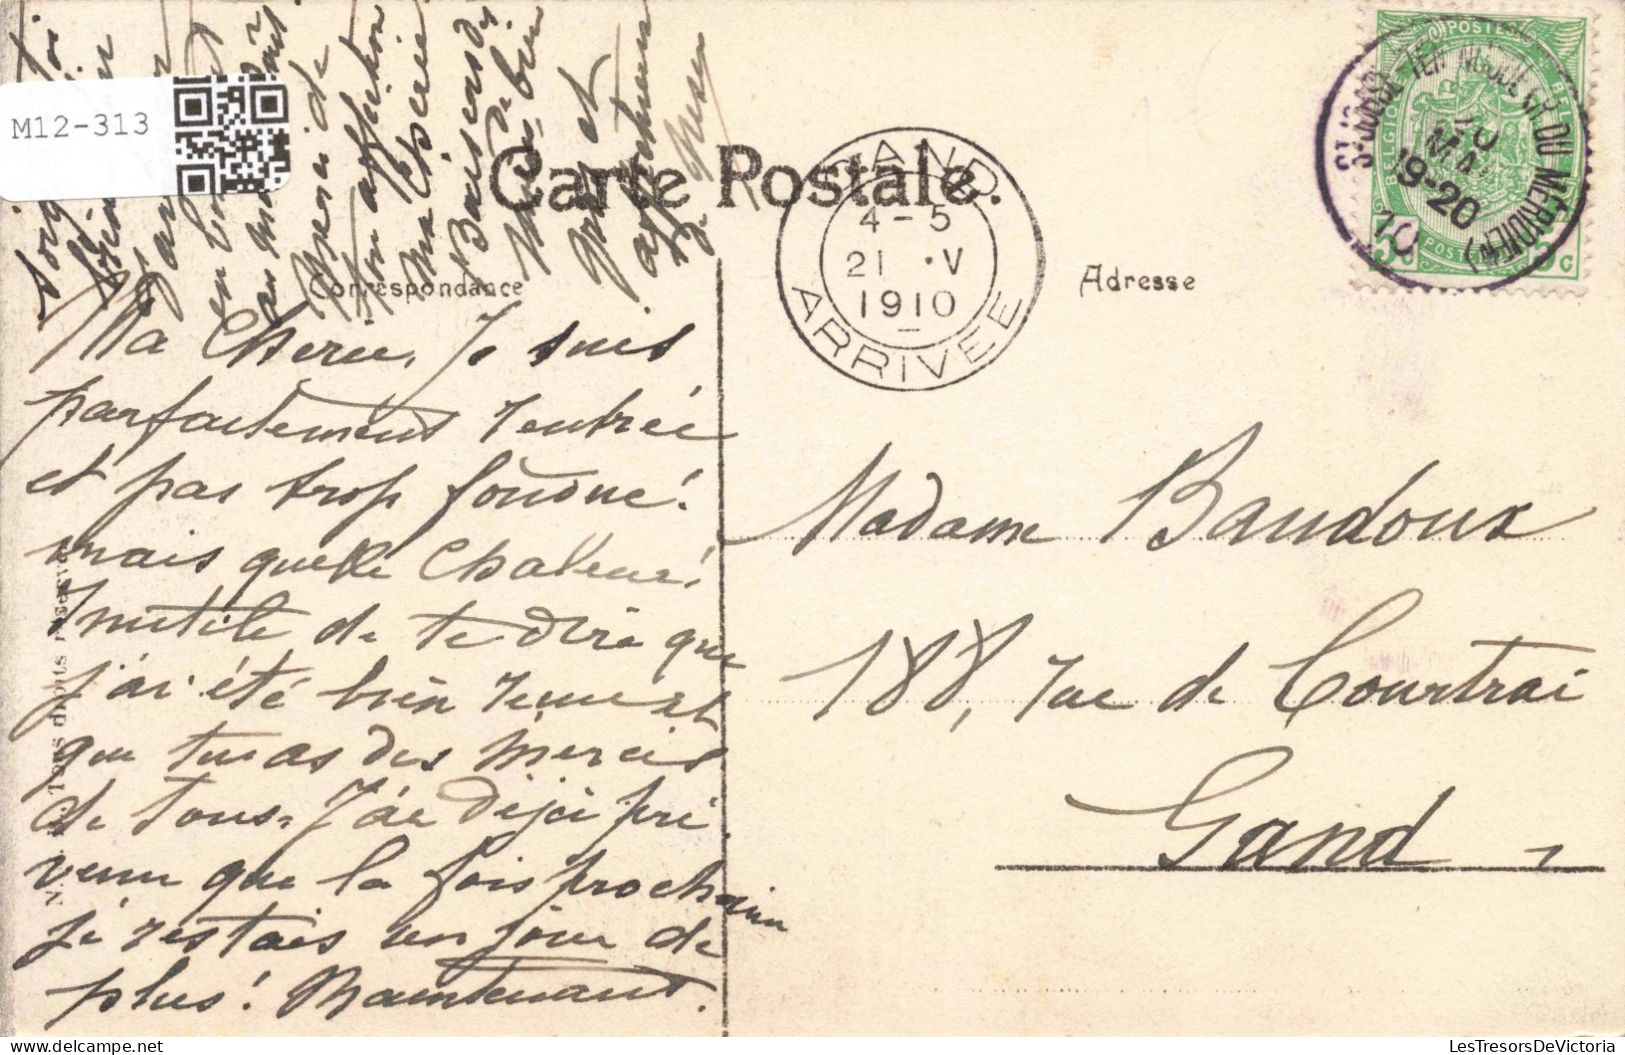 M12-313
Carte Postale.
Correspondance
Adresse
GAND
4-5
21 •V
1910
ARRIVEE
ST JOSSE-TEN-NOODE (R. DU MÉRIDIEN)
20
MAI
19-20
10
POSTES
BELGIQUE
BELGIË
5 c
Ma Cherie, Je suis
parfaitement rentrée
et pas trop foudue!
mais quelle chaleur!
Inutile de te dire que
j'ai été bien remer et
que tu as des mercis
de tous. J'ai déjà pré
venu que la fois prochaine
je restais un jour de
plus! Maintenant.
ton affection
ma chérie
Baisers de
et
Madame Baudoux
188, rue de Courtrai
Gand,
LesTresorsDeVictoria
delcampe.net